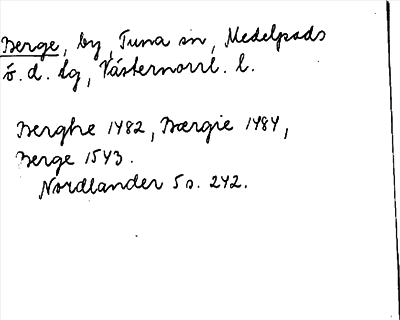 Berge, by, Tuna sn, Medelpads
ö. d. lg, Västernorrl. l.
Berghe 1482, Bærgie 1484,
Berge 1543.
Nordlander 5 s. 242.